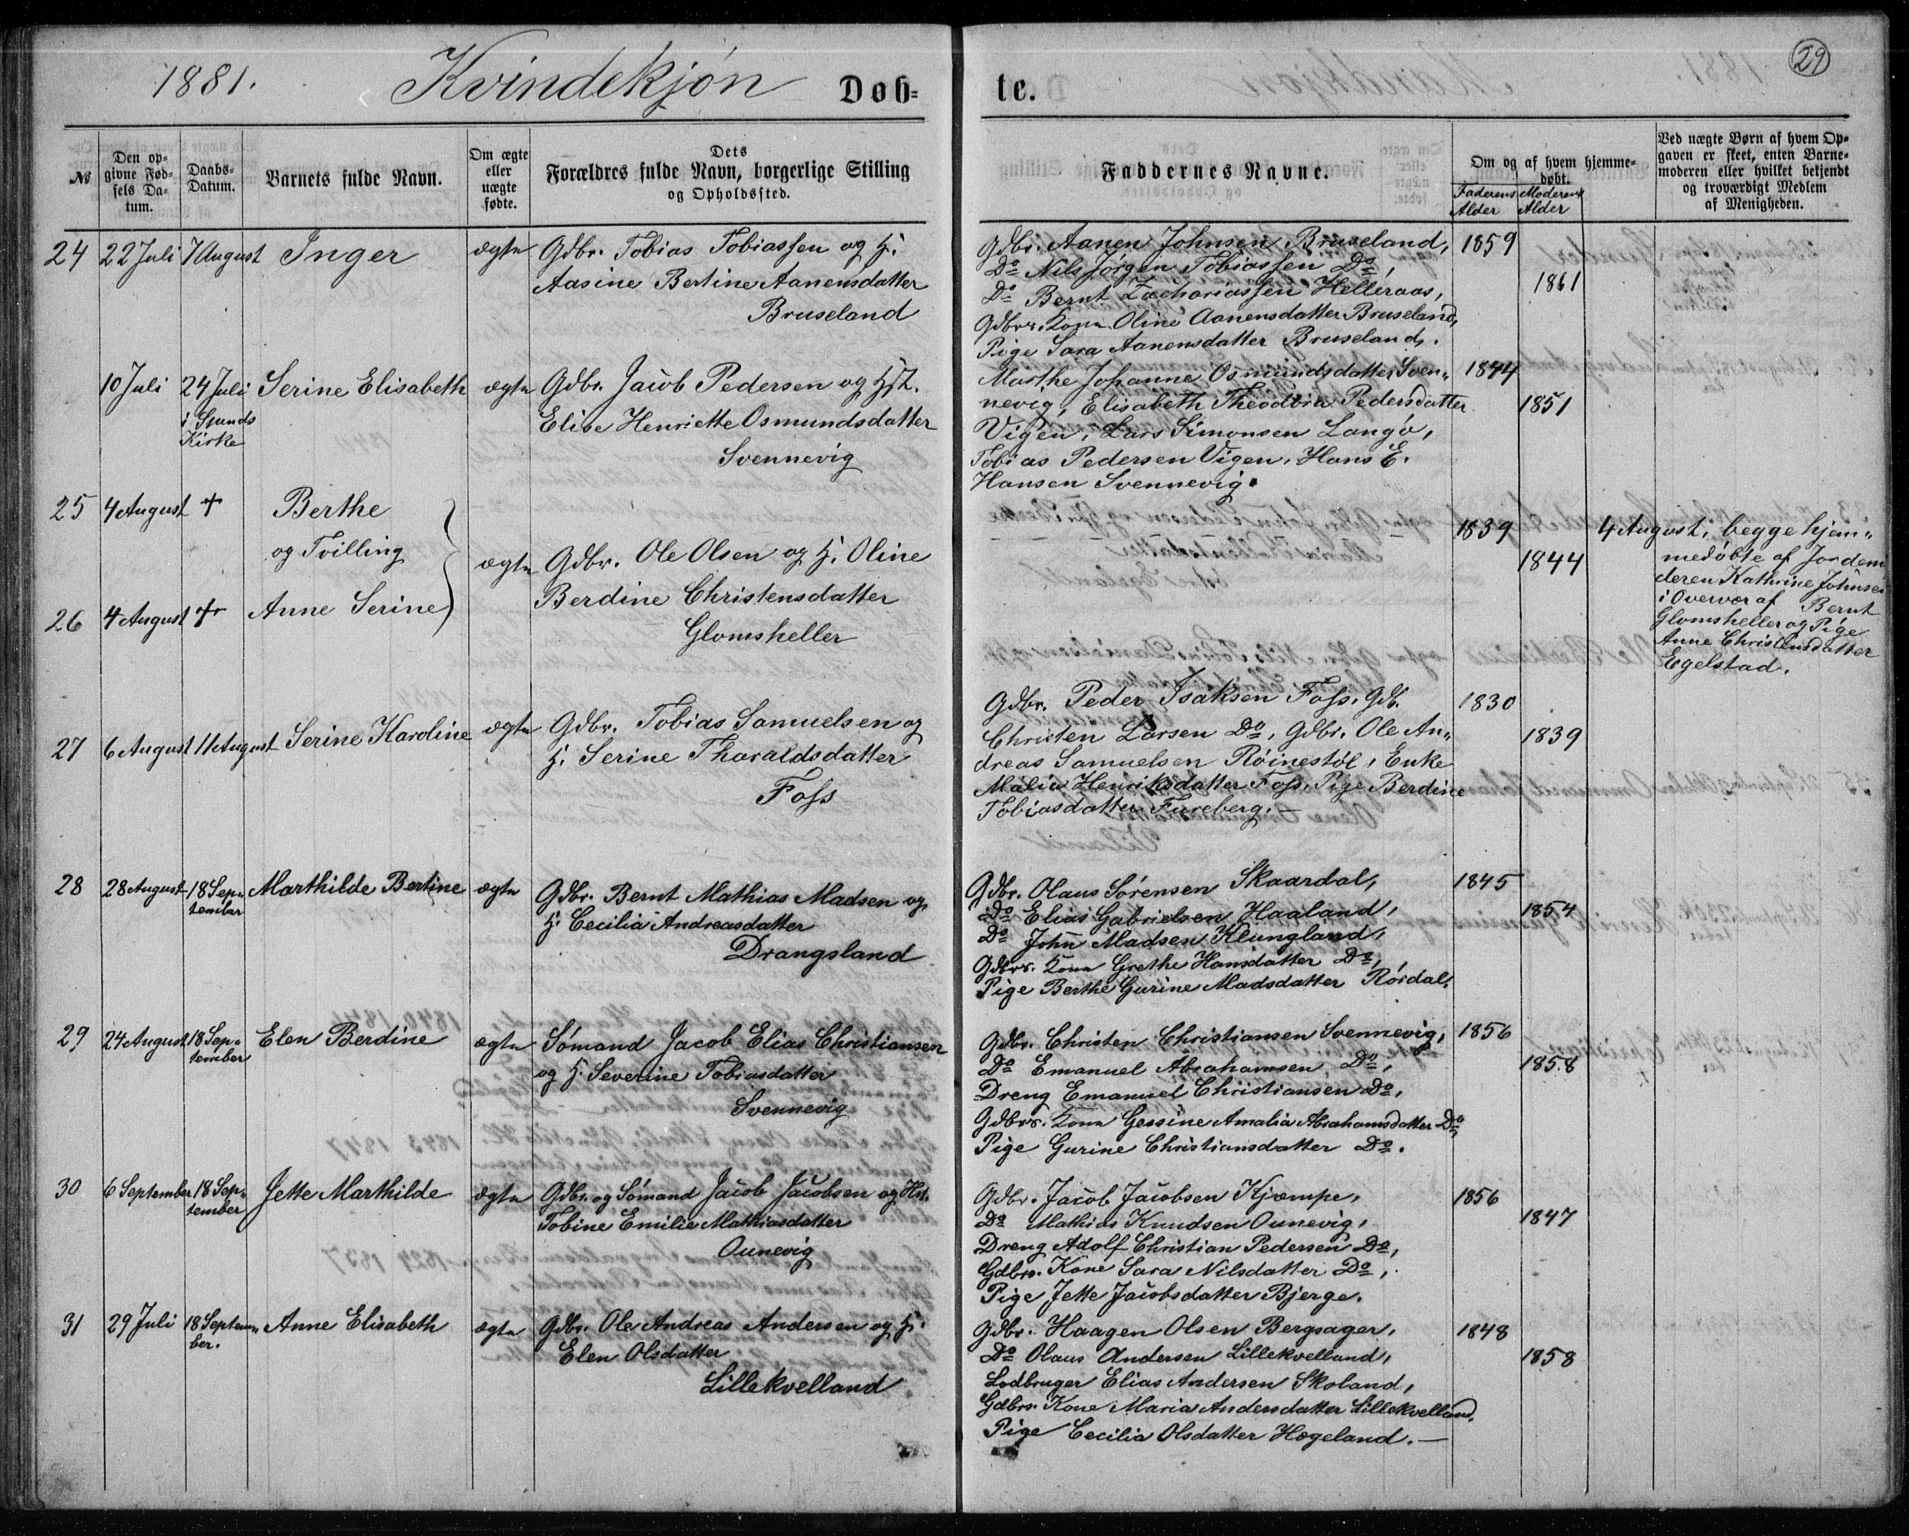 1881. Kvindekjøn Døb-
te.
29
№
Den op-
givne Fød-
sels Da-
tum.
Daabs-
Datum.
Barnets fulde Navn.
Om ægte
eller
uægte
fødte.
Dets
Forældres fulde Navn, borgerlige Stilling
og Opholdssted.
Faddernes Navne.
Om og af hvem hjemme-
døbt.
Faderens
Alder
Moderens
Alder
Ved uægte Børn af hvem Op-
gaven er skeet, enten Barne-
moderen eller hvilket bekjendt
og troværdigt Medlem
af Menigheden.
24 22 Juli 7 August Inger ægte
Gdbr. Tobias Tobiassen og H.
Aasine Bertine Aanensdatter
Bruseland
Gdbr. Aanen Johnsen Bruseland,
Do Nils Jørgen Tobiassen Do,
Do Bernt Zachariassen Helleraas,
Gdbrs. Kone Oline Aanensdatter Bruseland,
Pige Sara Aanensdatter Bruseland.
1859
1861
10 Juli 24 Juli
i
Kirke
Serine Elisabeth ægte
Gdbr. Jacob Pedersen og Hst.
Elise Henriette Osmundsdatter
Svennevig
Marthe Johanne Osmundsdatter Sven-
nevig, Elisabeth Theodora Pedersdatter
Vigen, Lars Simonsen Langø,
Tobias Pedersen Vigen, Hans E.
Hansen Svennevig.
1844
1851
25 4 August + Berthe
og Tvilling
26 4 August + Anne Serine
ægte
Gdbr. Ole Olsen og H. Oline
Berdine Christensdatter
Glomsheller
1839
1844
4 August, begge hjem-
medøbte af Jordemo-
deren Kathrine Johnsen
i Overvær af Bernt
Glomsheller og Pige
Anne Christensdatter
Egelstad.
27 6 August 11 August Serine Karoline ægte
Gdbr. Tobias Samuelsen og
H. Serine Tharaldsdatter
Foss
Gdbr. Peder Isaksen Foss, Gdb.
Christen Larsen Do, Gdbr. Ole An-
dreas Samuelsen Røinestøl, Enke
Malia Henriksdatter Foss, Pige Berdine
Tobiasdatter Fureberg.—
1830
1839
28 28 August 18 Sep-
tember
Marthilde Bertine ægte
Gdbr. Bernt Mathias Madsen og
H. Cecilia Andreasdatter
Drangsland
Gdbr. Olaus Sørensen Skaardal,
Do Elias Gabrielsen Haaland,
Do John Madsen Klungland,
Gdbrs. Kone Grethe Hansdatter Do,
Pige Berthe Gurine Madsdatter Rørdal.
1845
1854
29 24 August 18 Sep-
tember
Elen Berdine ægte
Sømand Jacob Elias Christiansen
og H. Severine Tobiasdatter
Svennevig
Gdbr. Christen Christiansen Svennevig,
Do Emanuel Abrahamsen Do,
Dreng Emanuel Christiansen Do,
Gdbrs. Kone Gessine Amalia Abrahamsdatter Do,
Pige Gurine Christiansdatter Do.
1856
1858
30 6 September 18 Sep-
tember
Jette Marthilde ægte
Gdbr. og Sømand Jacob Jacobsen og Hst.
Tobine Emilie Mathiasdatter
Ounevig
Gdbr. Jacob Jacobsen Kjæmpe,
Do Mathias Knudsen Ounevig,
Dreng Adolf Christian Pedersen Do,
Gdbrs. Kone Sara Nilsdatter Do,
Pige Jette Jacobsdatter Bjerge.
1856
1847
31 29 Juli 18 Septem-
ber.
Anne Elisabeth ægte
Gdbr. Ole Andreas Andersen og H.
Elen Olsdatter
Lillekvelland
Gdbr. Haagen Olsen Bergsager,
Do Olaus Andersen Lillekvelland,
Lodbruger Elias Andersen Skoland,
Gdbrs. Kone Maria Andersdatter Lillekvelland,
Pige Cecilia Olsdatter Hægeland.—
1848
1858